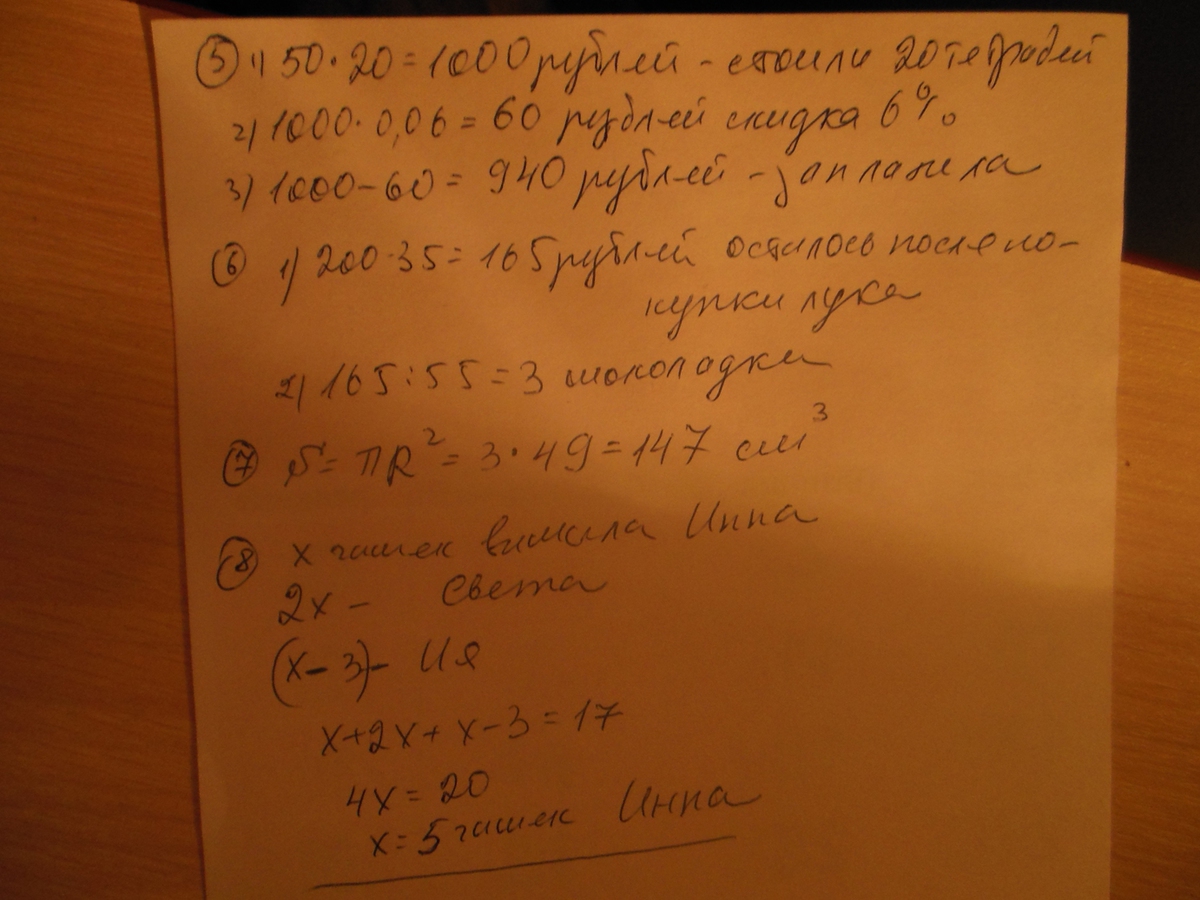 ⑤ 1) 50·20=1000 рублей - стоили 20 тетрадей
2) 1000·0,06=60 рублей скидка 6%
3) 1000-60=940 рублей - заплатила
⑥ 1) 200-35=165 рублей осталось после по-
купки лука
2) 165:55=3 шоколадки
⑦ S=πR²=3·49=147 см³
⑧ x чашек вымыла Инна
2x - Света
(x-3)- Ия
x+2x+x-3=17
4x=20
x=5 чашек Инна